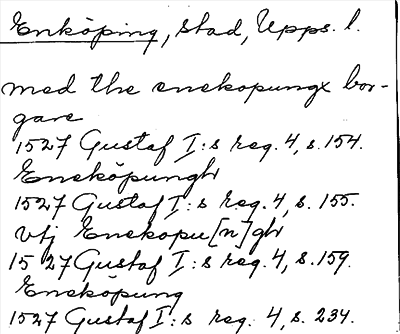 Enköping, stad, Upps. l.
med the enekopungx bor-
gare
1527 Gustaf I:s reg. 4, s. 154.
Eneköpungh
1527 Gustaf I:s reg. 4, s. 155.
vtj Enekopu[n]gh
1527 Gustaf I:s reg. 4, s. 159.
Eneköpung
1527 Gustaf I:s reg. 4, s. 234.